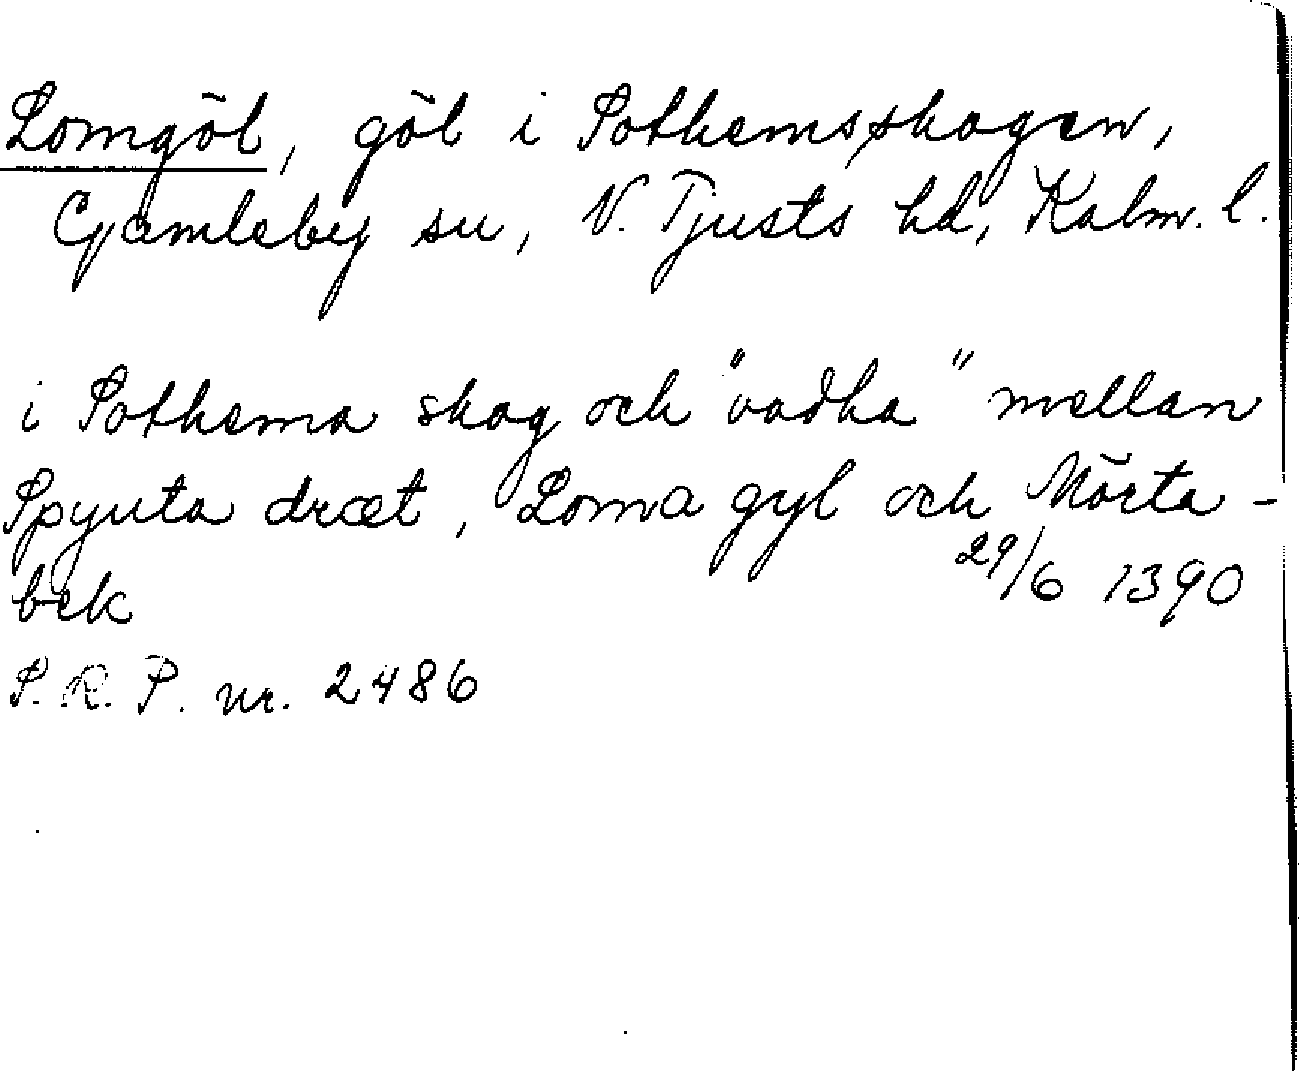 Lomgöl, göl i Sothemsskogen,
Gamleby sn, V. Tjusts hd, Kalm. l.
i Sothema skog och "vadha" mellan
Spynta dræt, Loma gyl och Mörta-
bek 29/6 1390
S. R. P. nr. 2486